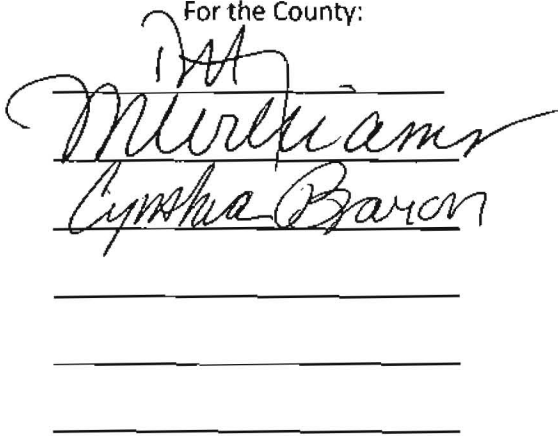 For the County:
MWilliams
Cynthia Baron